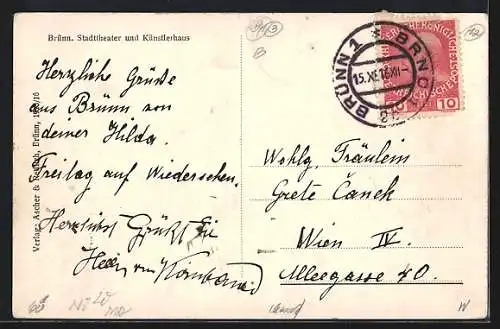 Brünn. Stadttheater und Künstlerhaus
Herzliche Grüße
aus Brünn von
deiner Hilda.
Freitag auf Wiedersehen.
Herzlichst Grüßt Sie
Verlag: Ascher & Brünn,
BRÜNN 1 * BRNO
15.XI.
10
Wohlg. Fräulein
Grete Čanek
Wien IV.
Alleegasse 40.